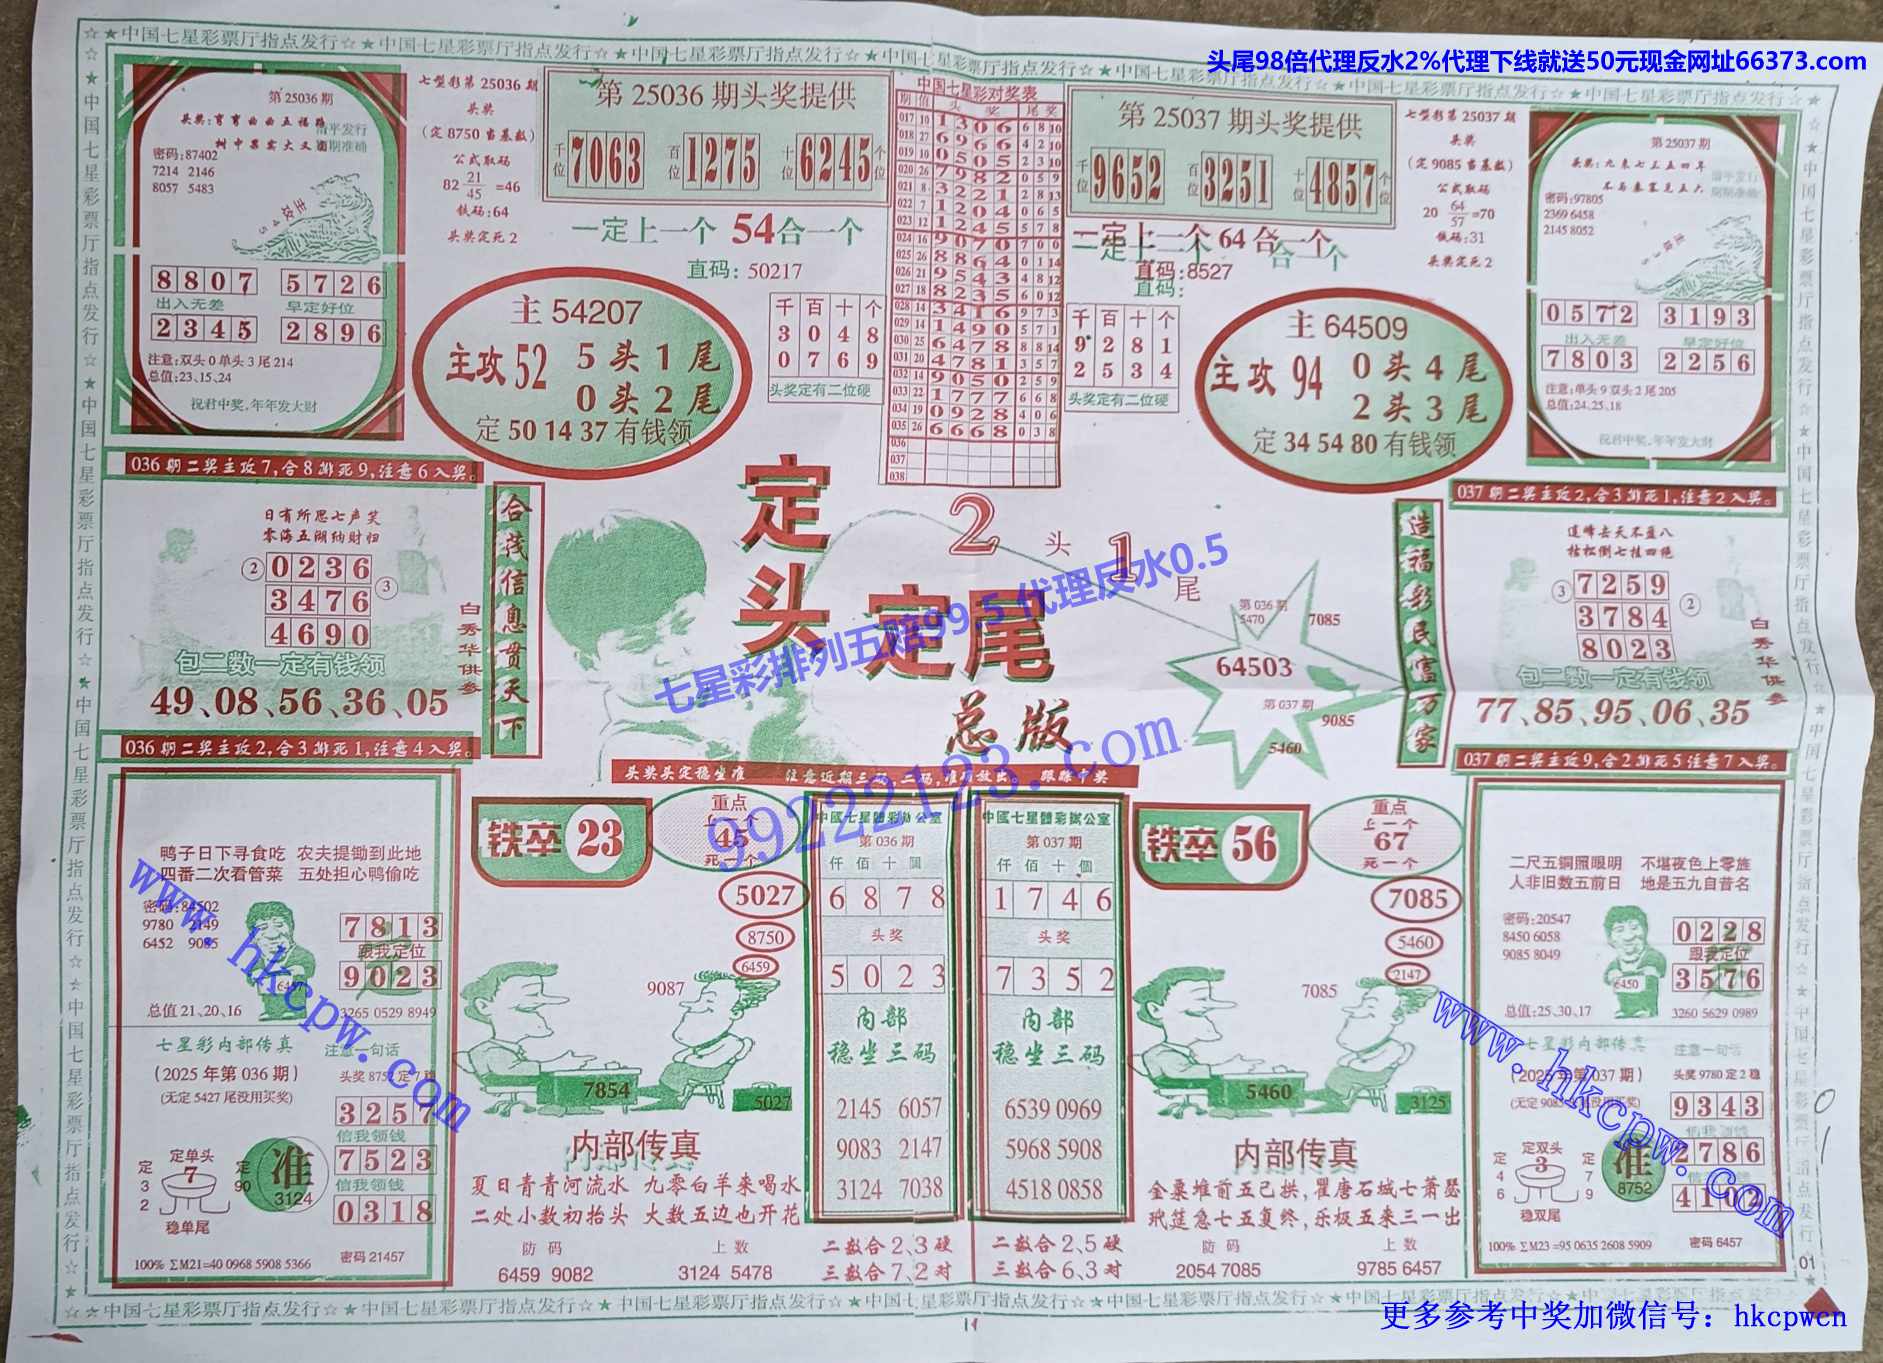 头尾98倍代理反水2%代理下线就送50元现金网址66373.com
☆★中国七星彩票厅指点发行☆★中国七星彩票厅指点发行☆★中国七星彩票厅指点发行
第 25036 期
密码:87402
7214 2146
8057 5483
主攻45
8807 5726
出入无差 早定好位
2345 2896
注意:双头 0 单头 3 尾 214
总值:23、15、24
祝君中奖,年年发大财
七型彩第 25036 期
头奖
(定 8750 当基数)
公式取码
82 21/45 =46
铁码:64
头奖定死 2
第 25036 期头奖提供
千位 7063 百位 1275 十位 6245 个位
一定上一个 54合一个
直码: 50217
主 54207
主攻 52 5 头 1 尾
0 头 2 尾
定 50 14 37 有钱领
千 百 十 个
3 0 4 8
0 7 6 9
头奖定有二位硬
中国七星彩对奖表
期 值 头奖 尾奖
017 10 1306 6 8 10
018 27 6966 4 2 10
019 10 0505 2 3 10
020 26 7982 0 5 9
021 8 3221 2 8 13
022 7 1204 0 6 5
023 12 1245 5 7 8
024 16 9070 7 0 0
025 26 8864 0 1 14
026 21 9543 4 8 12
027 18 8235 6 0 12
028 14 3416 9 7 3
029 14 1490 5 7 1
030 25 6478 8 8 14
031 20 4781 3 5 7
032 14 9050 2 5 9
033 22 1777 6 6 8
034 19 0928 4 0 6
035 26 6668 0 3 8
036
037
038
第 25037 期头奖提供
千位 9652 百位 3251 十位 4857 个位
一定上一个 64 合一个
直码:8527
直码:
千 百 十 个
9 2 8 1
2 5 3 4
头奖定有二位硬
主 64509
主攻 94 0 头 4 尾
2 头 3 尾
定 34 54 80 有钱领
七型彩第 25037 期
头奖
(定 9085 当基数)
公式取码
20 64/57 =70
铁码:31
头奖定死 2
第 25037 期
密码:97805
2369 6458
2145 8052
0572 3193
出入无差 早定好位
7803 2256
注意:单头 9 双头 2 尾 205
总值:24、25、18
祝君中奖,年年发大财
036 期二奖主攻 7,合 8 排死 9,注意 6 入奖。
日有所思七声笑
零海五湖纳财归
② 0236 ③
3476
4690
包二数一定有钱领
49、08、56、36、05
白秀华供参
合茂信息贯天下
036 期二奖主攻 2,合 3 排死 1,注意 4 入奖。
定头
定尾
总版
2 头 1 尾
七星彩排列五赔99.5 代理反水0.5
99222123.com
第 036 期
5470
7085
64503
第 037 期
9085
5460
造福彩民富万家
037 期二奖主攻 2,合 3 排死 1,注意 2 入奖。
道峰去天不盈八
枯松倒七挂四绝
③ 7259
3784 ②
8023
包二数一定有钱领
77、85、95、06、35
白秀华供参
037 期二奖主攻 9,合 2 排死 5 注意 7 入奖。
头奖头定稳坐准
跟踪中奖
鸭子日下寻食吃 农夫提锄到此地
四番二次看管菜 五处担心鸭偷吃
密码:84502
9780 2149
6452 9085
6457
7813
跟我定位
9023
总值 21、20、16
3265 0529 8949
七星彩内部传真 注意一句话
(2025 年第 036 期)
(无定 5427 尾没用买奖)
3257
信我领钱
7523
信我领钱
0318
定单头
定32 7 定90
稳单尾
准
3124
100% ΣM21=40 0968 5908 5366 密码 21457
www.hkcpw.com
铁卒 23
重点
上一个
45
死一个
5027
8750
6459
9087
7854
5027
内部传真
夏日青青河流水 九零白羊来喝水
二处小数初抬头 大数五边也开花
防 码 上 数
6459 9082 3124 5478
中國七星體彩辦公室
第 036 期
仟 佰 十 個
6 8 7 8
头奖
5 0 2 3
内部
稳坐三码
2145 6057
9083 2147
3124 7038
二数合 2、3 硬
三数合 7、2 对
中國七星體彩辦公室
第 037 期
仟 佰 十 個
1 7 4 6
头奖
7 3 5 2
内部
稳坐三码
6539 0969
5968 5908
4518 0858
二数合 2、5 硬
三数合 6、3 对
铁卒 56
重点
上一个
67
死一个
7085
5460
2147
7085
5460
3125
内部传真
金粟堆前五己拱,瞿唐石城七萧瑟
玳筵急七五复终,乐极五来三一出
防 码 上 数
2054 7085 9785 6457
二尺五銅照眼明 不堪夜色上零旌
人非旧数五前日 地是五九自昔名
密码:20547
8450 6058
9085 8049
6450
0228
跟我定位
3576
总值:25、30、17
3260 5629 0989
七星彩内部传真 注意一句话
(2025 年第 037 期) 头奖 9780 定 2 稳
9343
2786
4102
定双头
定46 3 定79
稳双尾
准
8752
100% ΣM23 =95 0635 2608 5909 密码 6457
www.hkcpw.com
01
☆★中国七星彩票厅指点发行☆★中国七星彩票厅指点发行☆★中国七星彩票厅指点发行
更多参考中奖加微信号：hkcpwcn